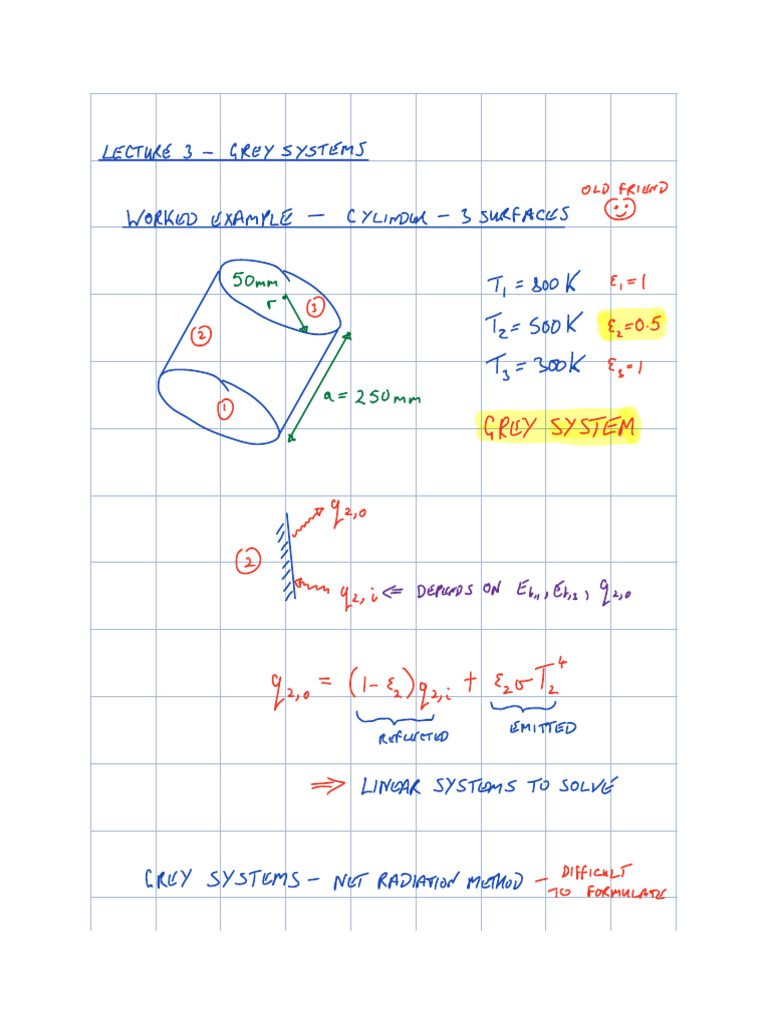 LECTURE 3 - GREY SYSTEMS
OLD FRIEND
WORKED EXAMPLE - CYLINDER - 3 SURFACES
50mm
r
①
②
①
a = 250mm
T₁ = 800K ε₁ = 1
T₂ = 500K ε₂ = 0.5
T₃ = 300K ε₃ = 1
GREY SYSTEM
q₂,₀
②
q₂,i ⇐ DEPENDS ON E_b,1, E_b,3, q₂,₀
q₂,₀ = (1 - ε₂) q₂,i + ε₂σT₂⁴
REFLECTED EMITTED
⇒ LINEAR SYSTEMS TO SOLVE
GREY SYSTEMS - NET RADIATION METHOD - DIFFICULT
TO FORMULATE